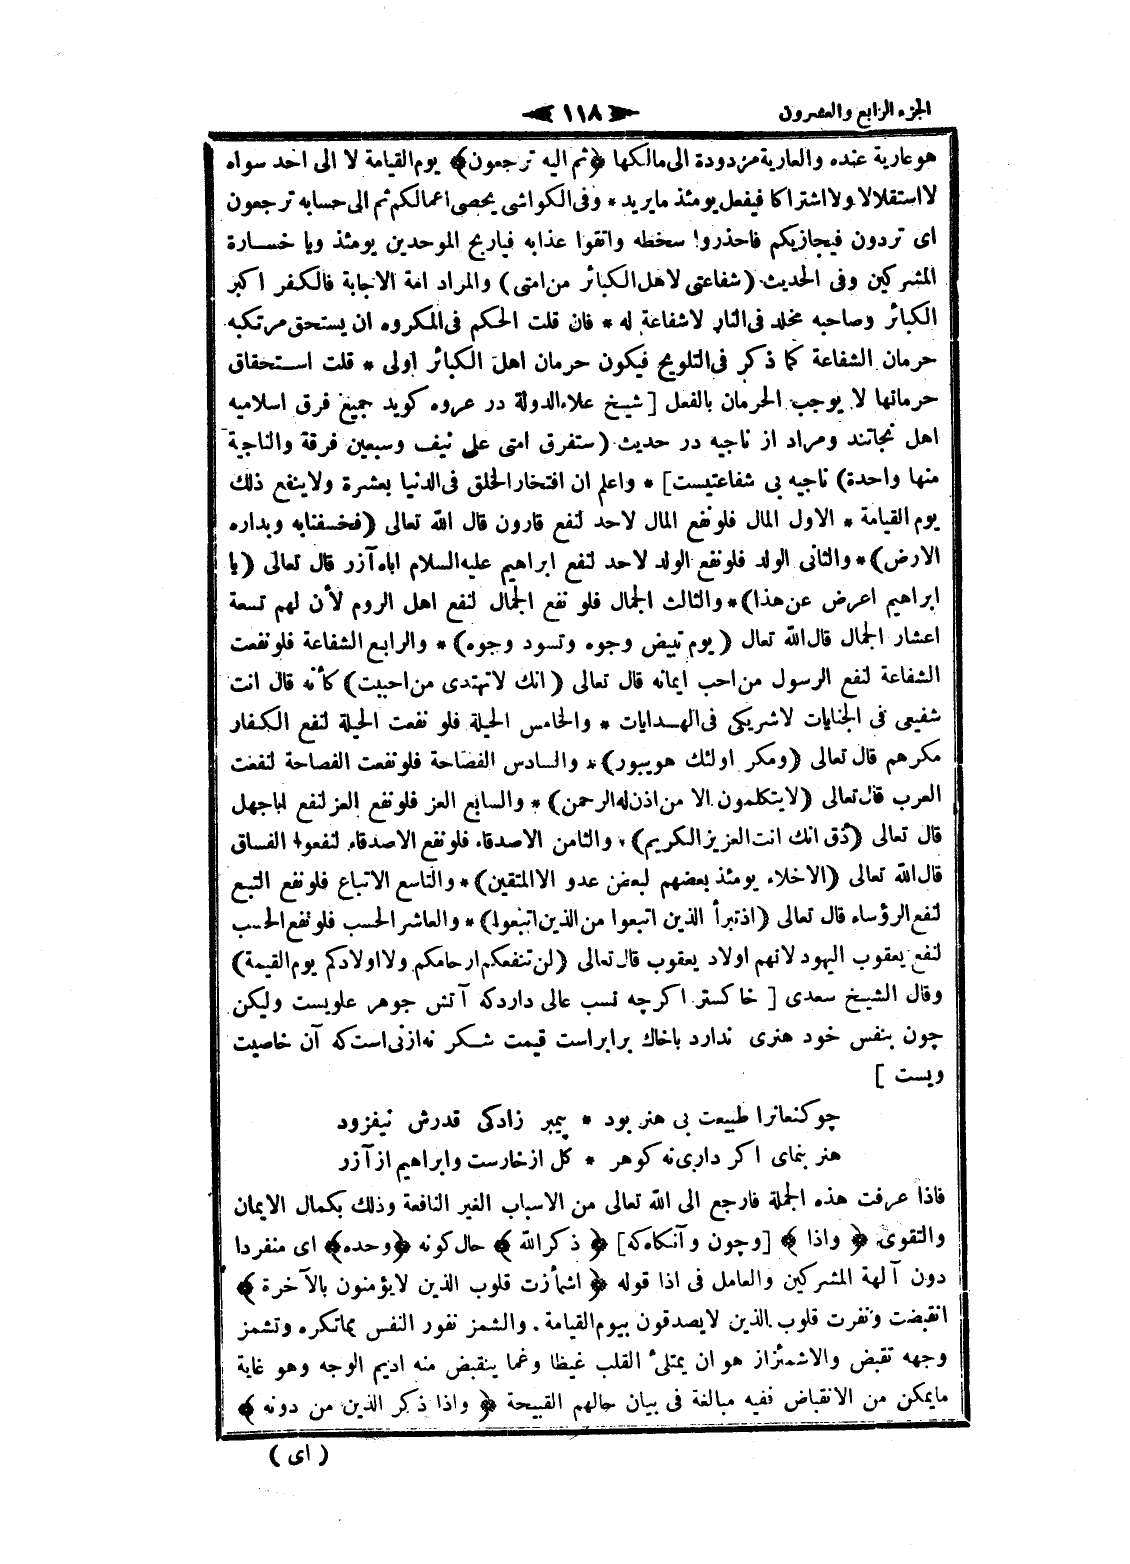 الجزء الرابع والعشرون
١١٨
هو عارية عنده والعارية مردودة الى مالكها ﴿ثم اليه ترجعون﴾ يوم القيامة لا الى احد سواه
لا استقلالا ولا اشتراكا فيفعل يومئذ ما يريد * وفى الكواشى يحصى اعمالكم ثم الى حسابه ترجعون
اى تردون فيجازيكم فاحذروا سخطه واتقوا عذابه فياربح الموحدين يومئذ ويا خسارة
المشركين وفى الحديث (شفاعتى لاهل الكبائر من امتى) والمراد امة الاجابة فالكفر اكبر
الكبائر وصاحبه مخلد فى النار لا شفاعة له * فان قلت الحكم فى المكروه ان يستحق مرتكبه
حرمان الشفاعة كما ذكر فى التلويح فيكون حرمان اهل الكبائر اولى * قلت استحقاق
حرمانها لا يوجب الحرمان بالفعل [ شيخ علاء الدولة در عروه كويد جميع فرق اسلاميه
اهل نجاتند ومراد از ناجيه در حديث (ستفرق امتى على نيف وسبعين فرقة والناجية
منها واحدة) ناجيه بى شفاعتيست] * واعلم ان افتخار الخلق فى الدنيا بعشرة ولا ينفع ذلك
يوم القيامة * الاول المال فلو نفع المال لاحد لنفع قارون قال الله تعالى (فخسفنا به وبداره
الارض)*والثانى الولد فلو نفع الولد لاحد لنفع ابراهيم عليه السلام اباه آزر قال تعالى (يا
ابراهيم اعرض عن هذا)*والثالث الجمال فلو نفع الجمال لنفع اهل الروم لأن لهم تسعة
اعشار الجمال قال الله تعال (يوم تبيض وجوه وتسود وجوه)* والرابع الشفاعة فلو نفعت
الشفاعة لنفع الرسول من احب ايمانه قال تعالى (انك لا تهتدى من احببت) كأنه قال انت
شفيعى فى الجنايات لا شريكى فى الهدايات * والخامس الحيلة فلو نفعت الحيلة لنفع الكفار
مكرهم قال تعالى (ومكر اولئك هو يبور)* والسادس الفصاحة فلو نفعت الفصاحة لنفعت
العرب قال تعالى (لا يتكلمون الا من اذن له الرحمن)* والسابع العز فلو نفع العز لنفع اباجهل
قال تعالى (ذق انك انت العزيز الكريم)* والثامن الاصدقاء فلو نفع الاصدقاء لنفعوا الفساق
قال الله تعالى (الاخلاء يومئذ بعضهم لبعض عدو الا المتقين)*والتاسع الاتباع فلو نفع التبع
لنفع الرؤساء قال تعالى (اذ تبرأ الذين اتبعوا من الذين اتبعوا)* والعاشر الحسب فلو نفع الحسب
لنفع يعقوب اليهود لانهم اولاد يعقوب قال تعالى (لن تنفعكم ارحامكم ولا اولادكم يوم القيمة)
وقال الشيخ سعدى [ خاكستر اكرچه نسب عالى داردكه آتش جوهر علويست وليكن
چون بنفس خود هنرى ندارد باخاك برابراست قيمت شكر نه ازنى است كه آن خاصيت
ويست ]
چو كنعانرا طبيعت بى هنر بود * پيمبر زادكى قدرش نيفزود
هنر بنماى اكر دارى نه كوهر * كل از خارست وابراهيم از آزر
فاذا عرفت هذه الجملة فارجع الى الله تعالى من الاسباب الغير النافعة وذلك بكمال الايمان
والتقوى ﴿ واذا ﴾ [وچون وآنكاه كه] ﴿ ذكر الله ﴾ حال كونه ﴿وحده﴾ اى منفردا
دون آلهة المشركين والعامل فى اذا قوله ﴿ اشمأزت قلوب الذين لا يؤمنون بالآخرة ﴾
انقبضت ونفرت قلوب الذين لا يصدقون بيوم القيامة . والشمز نفور النفس بما تكره وتشمز
وجهه تقبض والاشمئزاز هو ان يمتلئ القلب غيظا وغما ينقبض منه اديم الوجه وهو غاية
ما يمكن من الانقباض ففيه مبالغة فى بيان حالهم القبيحة ﴿ واذا ذكر الذين من دونه ﴾
( اى )